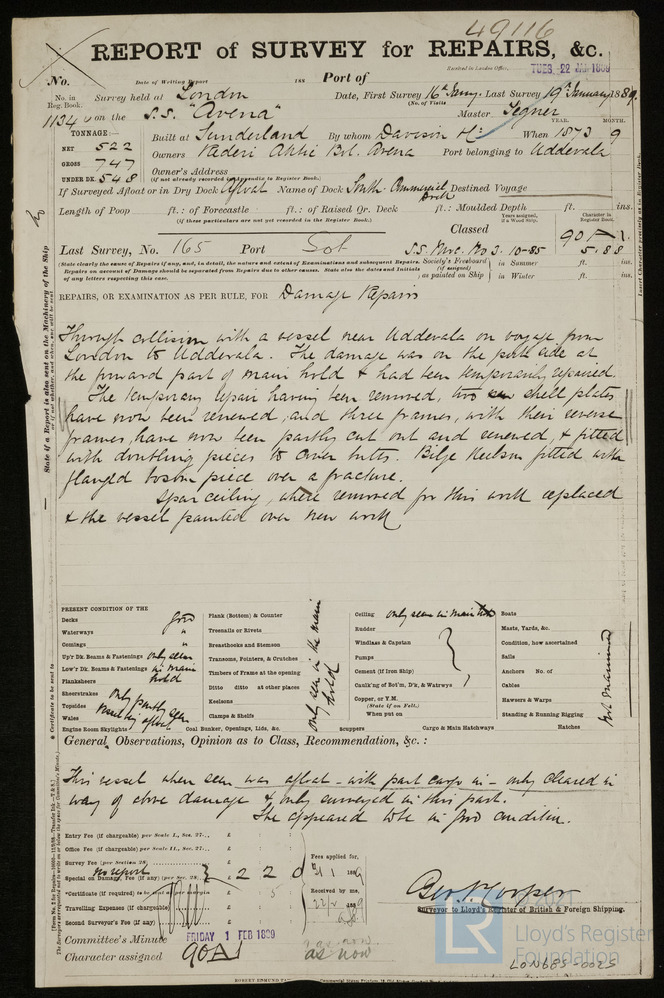 49116
REPORT of SURVEY for REPAIRS, &c.
Received in London Office,
TUES. 22 JAN 1889
No.
Date of Writing Report 188 Port of
No. in Reg. Book.
Survey held at London Date, First Survey 16th Jany. Last Survey 19th January 1889.
(No. of Visits
1134 on the S.S. "Avena" Master Tegner
YEAR. MONTH.
TONNAGE:
Built at Sunderland By whom Davison When 1873 9
NET 522
GROSS 747
UNDER DK. 548
Owners Rederi Aktie Bol. Avena Port belonging to Uddevala
Owner's Address
(if not already recorded in Appendix to Register Book).
If Surveyed Afloat or in Dry Dock Afloat Name of Dock South Commercial Dock Destined Voyage
Length of Poop ft.: of Forecastle ft.: of Raised Qr. Deck ft.: Moulded Depth ft. ins.
(if these particulars are not yet recorded in the Register Book).
Years assigned, if a Wood Ship.
Character in Register Book,
Classed 90A1.
Last Survey, No. 165 Port Got S.S. Nvc. No 3. 10-85 5.88
(State clearly the cause of Repairs if any, and, in detail, the nature and extent of Examinations and subsequent Repairs.
Repairs on account of Damage should be separated from Repairs due to other causes. State also the dates and Initials
of any letters respecting this case.
Society's Freeboard (if assigned) as painted on Ship
in Summer ft. ins.
in Winter ft. ins.
REPAIRS, OR EXAMINATION AS PER RULE, FOR Damage Repairs
Through collision with a vessel near Uddevala on voyage from
London to Uddevala. The damage was on the port side at
the forward part of main hold & had been temporarily repaired.
The temporary repair having been removed, two shell plates
have now been renewed, and three frames, with their reverse
frames, have now been partly cut out and renewed, & fitted
with doubling pieces to cover butts. Bilge Keelson fitted with
flanged bosom piece over a fracture.
Spar ceiling, where removed for this work replaced
& the vessel painted over new work.
PRESENT CONDITION OF THE
Decks good
Waterways "
Comings "
Up'r Dk. Beams & Fastenings only seen
Low'r Dk. Beams & Fastenings in main
Planksheers hold
Sheerstrakes only partly seen
Topsides
Wales
Engine Room Skylights
Plank (Bottom) & Counter
Treenails or Rivets
Breasthooks and Stemson
Transoms, Pointers, & Crutches
Timbers of Frame at the opening
Ditto ditto at other places
Keelsons
Clamps & Shelfs
Coal Bunker, Openings, Lids, &c.
only seen in the main hold
Ceiling only seen in main hold
Rudder
Windlass & Capstan
Pumps
Cement (if Iron Ship)
Caulk'ng of Bot'm, D'k, & Watrwys
Copper, or Y.M.
(State if on Felt.)
When put on
Scuppers
Cargo & Main Hatchways
Boats
Masts, Yards, &c.
Condition, how ascertained
Sails
Anchors No. of
Cables
Hawsers & Warps
Standing & Running Rigging
Hatches
Not Examined
General Observations, Opinion as to Class, Recommendation, &c.:
This vessel when seen was afloat - with part cargo in - only cleared in
way of above damage & only surveyed in this part.
She appeared to be in good condition.
Entry Fee (if chargeable) per Scale I., Sec. 27... £ : :
Office Fee (if chargeable) per Scale II., Sec. 27... £ : :
Survey Fee (per Section 28) £ : :
no report
Special on Damage Fee (if any) (per Sec. 28) £ 2 2 0
*Certificate (if required) to be sent as per margin 5
Travelling Expenses (if chargeable) £
Second Surveyor's Fee (if any) £
Fees applied for,
Received by me,
Geo. J. Cooper
Surveyor to Lloyd's Register of British & Foreign Shipping.
Committee's Minute FRIDAY 1 FEB 1889
Character assigned 90A1 as now
Lloyd's Register
Foundation
LON685-0025